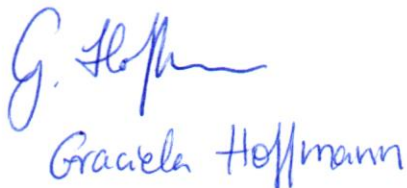 G. Hoffmann
Graciela Hoffmann